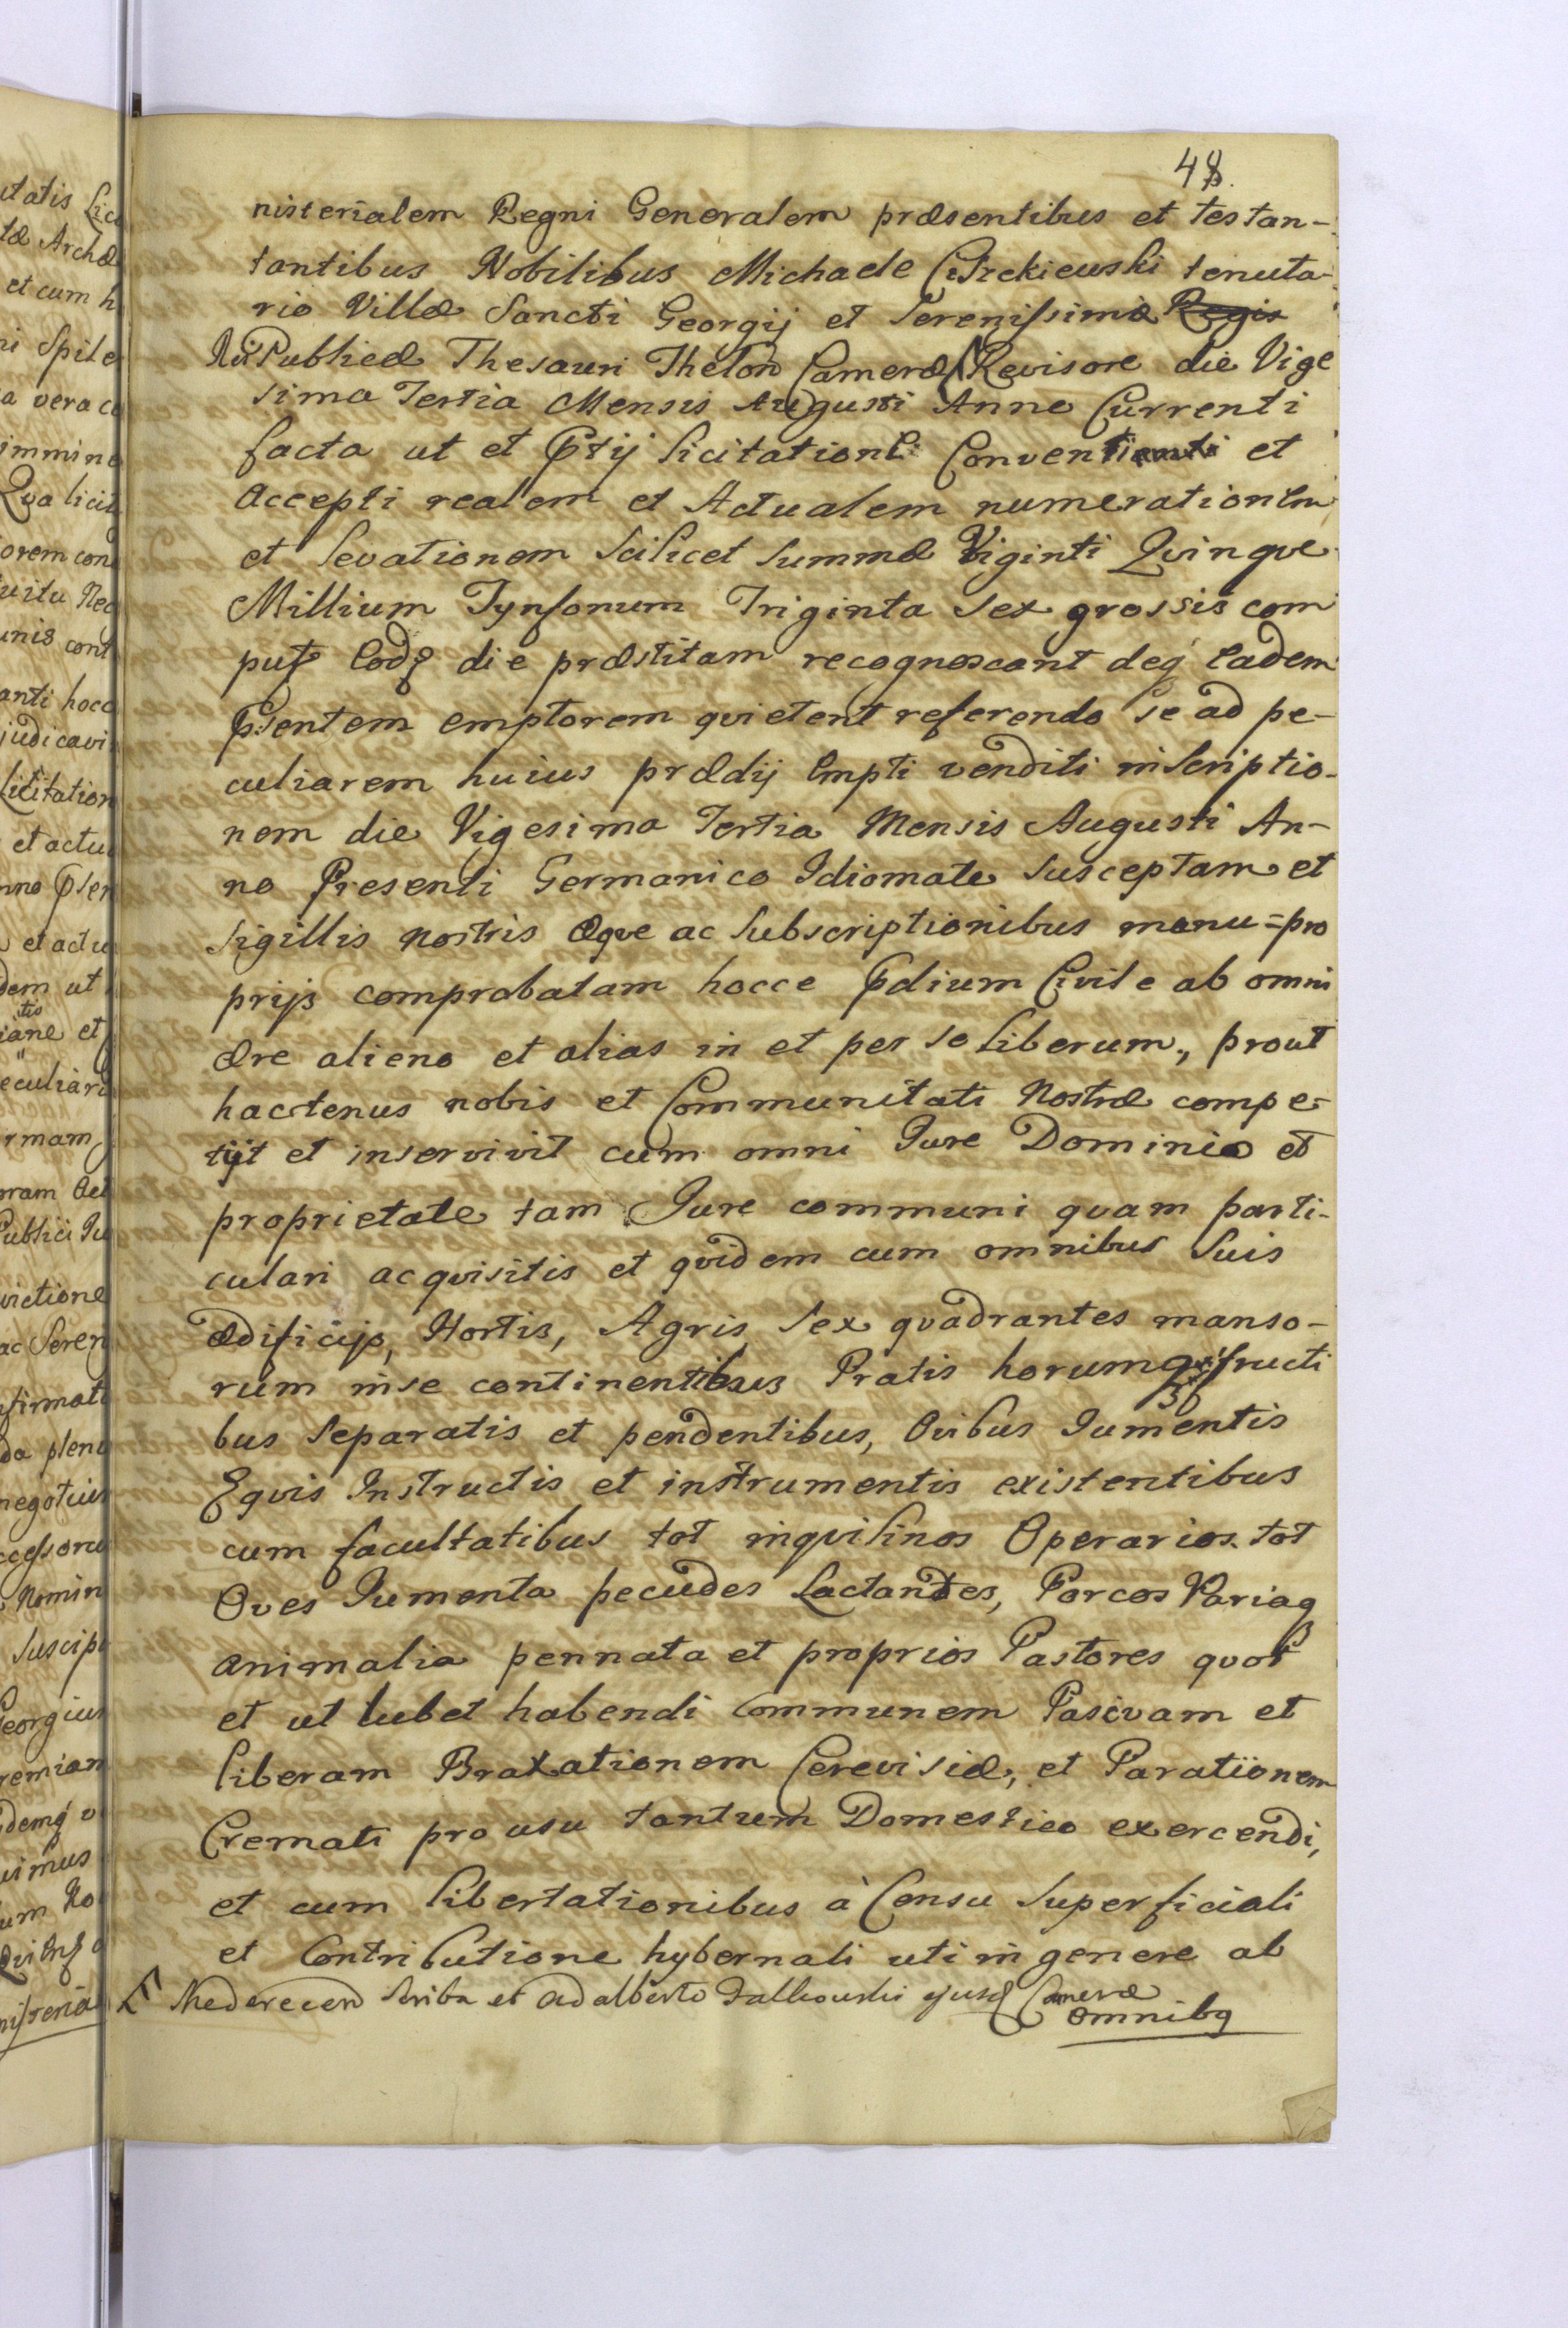 48.
nisterialem Regni Generalem præsentibus et testan-
tantibus Nobilibus Michaele tenuta-
rio Villæ Sancti Georgij et Serenissimæ Regis
Publicæ Thesauri Thelon Cameræ Revisore die Vige
sima Tertia Mensis Augusti Anno Currenti
facta ut et licitationi et
accepti realem et Actualem numerationem
et levationem scilicet summæ Viginti Qvinqve
Millium Tynfonum Triginta sex grossis com
put die præstitam recognoscant deq eadem
emptorem qvietent referendo se ad pe-
culiarem huius prædij Empti venditi inscriptio-
nem die Vigesima Tertia Mensis Augusti An-
no Presenti Germanico Idiomate susceptam et
sigillis nostris æqve ac Subscriptionibus manu=pro
prijs comprobatam hocce Civile ab omni
ære alieno et alias in et per se Liberum, prout
hactenus nobis et Communitati Nostræ compe-
tijt et inservivit cum omni Jure Dominio et
proprietate tam Jure communi qvam parti-
culari acqvisitis et qvidem cum omnibus Suis
ædificijs, Hortis, Agris Sex qvadrantes manso-
rum in se continentibus Pratis horumq fructi
bus Separatis et pendentibus, Ovibus Jumentis
Eqvis Instructis et instrumentis existentibus
cum facultatibus tot inqvilinos Operarios tot
Oves Jumenta pecudes Lactandes, Porcos Variaq
animalia pennata et proprios Pastores qvot
et ut lubet habendi communem Pascvam et
liberam Braxationem Cerevisiæ, et Parationem
Cremati pro usu tantum Domestico exercendi,
et cum libertationibus à Censu Superficiali
et Contributione hybernali uti in genere ab
Scriba et Adalberto Cameræ
omnibq